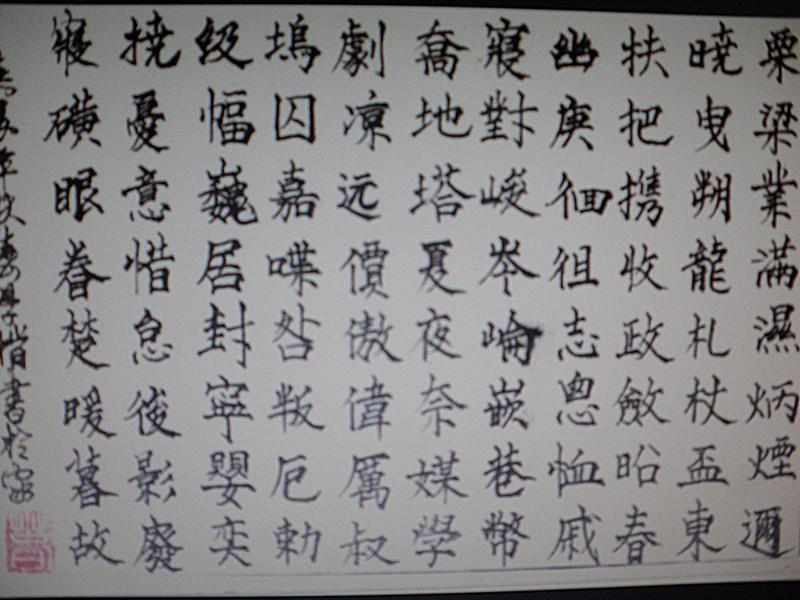 栗梁業滿濕炳煙邇
曉曳朔龍札杖盃東
扶把携收政斂昭春
幽庚徊徂志恖恤戚
寢對峻岑崘嵌巷幣
喬地塔夏夜奈媒學
劇凉远價傲偉厲叔
塢囚嘉喋咎叛厄勅
级幅巍居封寧嬰奕
撓憂意惜怠後影廢
寢磺眼眷楚暖暮故